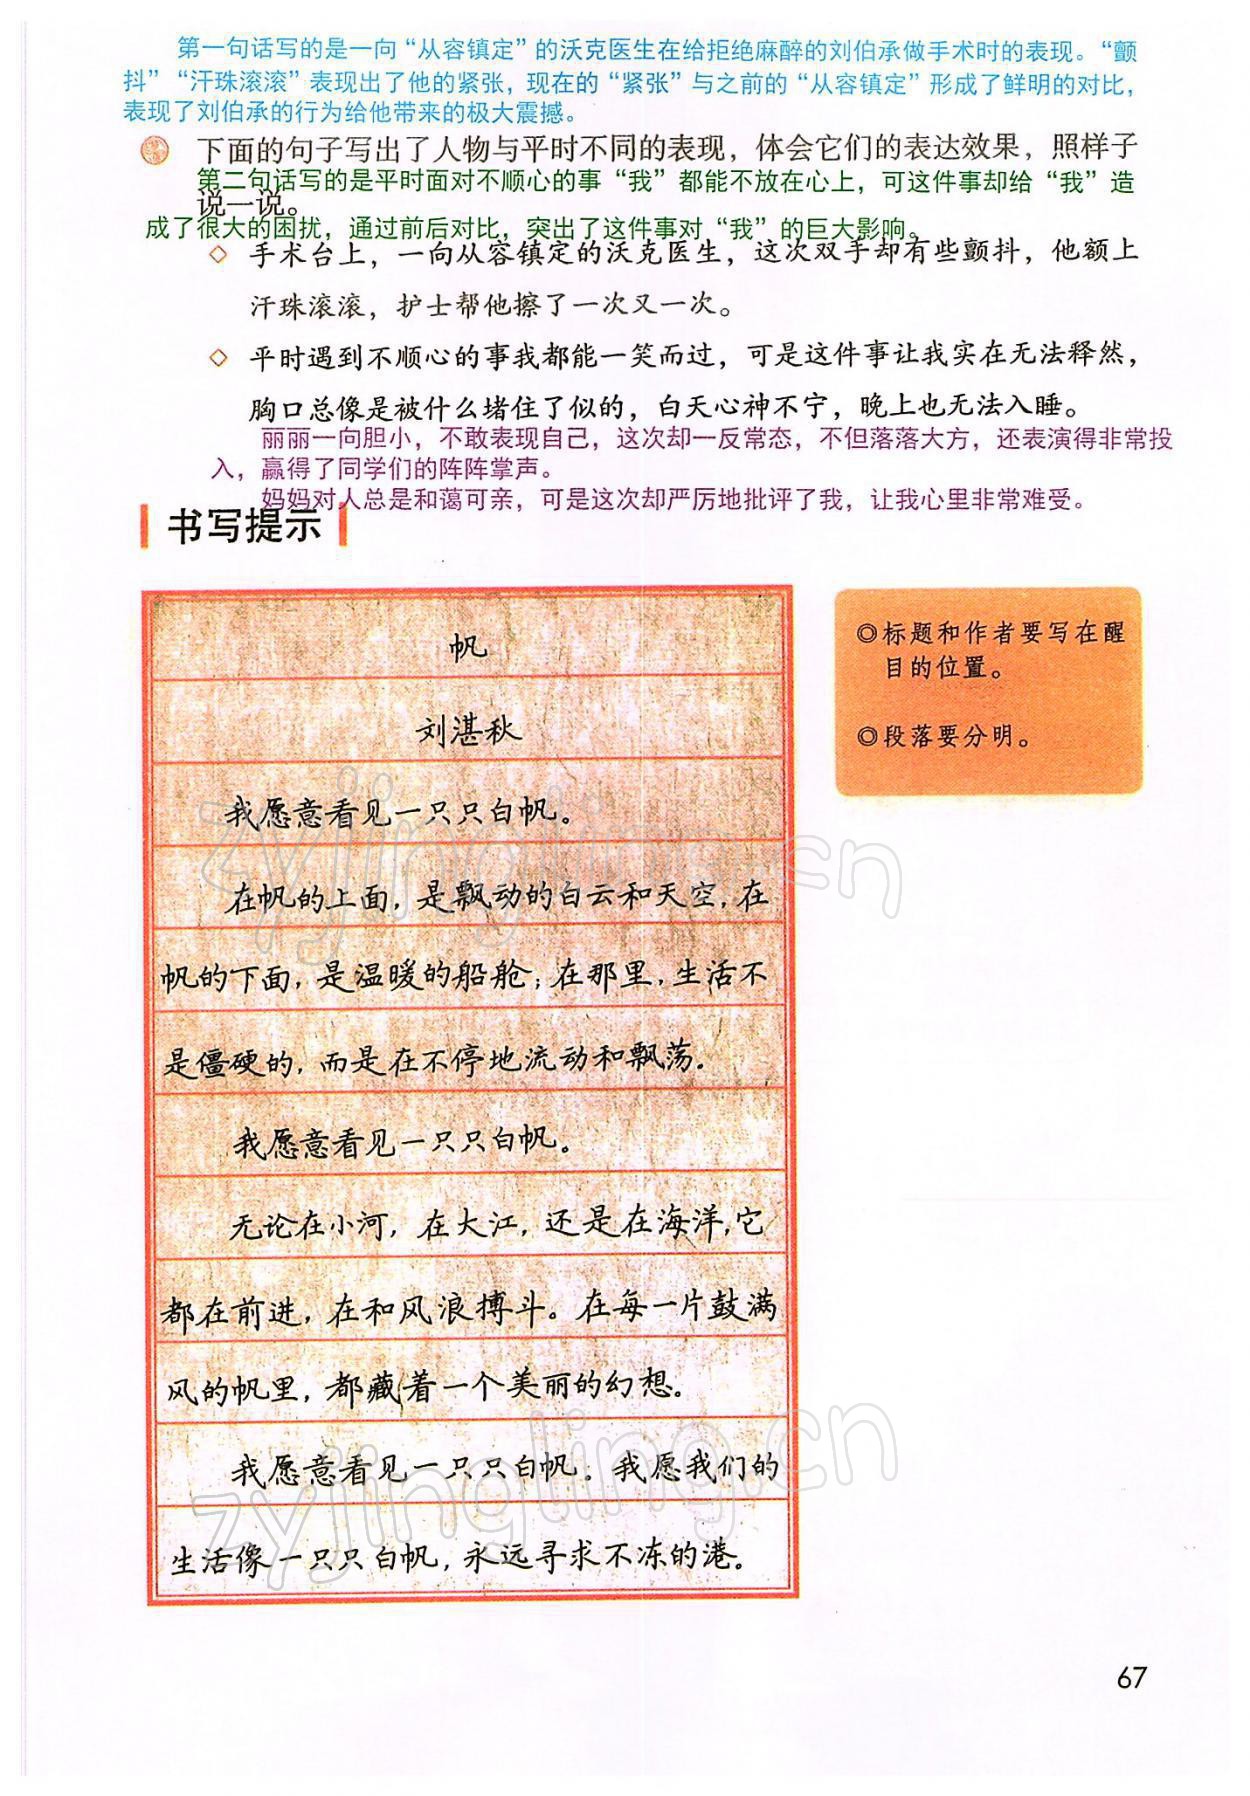 第一句话写的是一向“从容镇定”的沃克医生在给拒绝麻醉的刘伯承做手术时的表现。“颤
抖”“汗珠滚滚”表现出了他的紧张，现在的“紧张”与之前的“从容镇定”形成了鲜明的对比，
表现了刘伯承的行为给他带来的极大震撼。
下面的句子写出了人物与平时不同的表现，体会它们的表达效果，照样子
第二句话写的是平时面对不顺心的事“我”都能不放在心上，可这件事却给“我”造
说一说。
成了很大的困扰，通过前后对比，突出了这件事对“我”的巨大影响。
◇ 手术台上，一向从容镇定的沃克医生，这次双手却有些颤抖，他额上
汗珠滚滚，护士帮他擦了一次又一次。
◇ 平时遇到不顺心的事我都能一笑而过，可是这件事让我实在无法释然，
胸口总像是被什么堵住了似的，白天心神不宁，晚上也无法入睡。
丽丽一向胆小，不敢表现自己，这次却一反常态，不但落落大方，还表演得非常投
入，赢得了同学们的阵阵掌声。
妈妈对人总是和蔼可亲，可是这次却严厉地批评了我，让我心里非常难受。
书写提示
帆
刘湛秋
我愿意看见一只只白帆。
在帆的上面，是飘动的白云和天空，在
帆的下面，是温暖的船舱；在那里，生活不
是僵硬的，而是在不停地流动和飘荡。
我愿意看见一只只白帆。
无论在小河，在大江，还是在海洋，它
都在前进，在和风浪搏斗。在每一片鼓满
风的帆里，都藏着一个美丽的幻想。
我愿意看见一只只白帆。我愿我们的
生活像一只只白帆，永远寻求不冻的港。
◎标题和作者要写在醒
目的位置。
◎段落要分明。
zyjingling.cn
zyjingling.cn
67